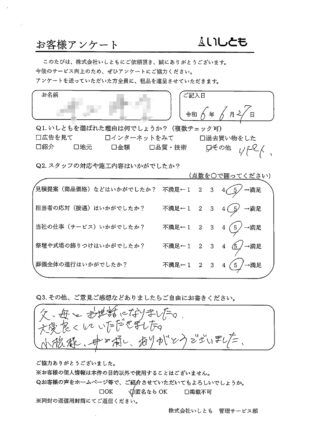 お客様アンケート
いしとも
このたびは、株式会社いしともにご依頼頂き、誠にありがとうございます。
今後のサービス向上のため、ぜひアンケートにご協力ください。
アンケートを送っていただいた方全員に、粗品を進呈させていただきます。
お名前
ご記入日
令和 6年 6月 27日
Q1.いしともを選ばれた理由は何でしょうか?(複数チェック可)
□広告を見て □インターネットをみて □過去買い物をした
□紹介 □地元 □金額 □品質・技術 ☑その他
Q2.スタッフの対応や施工内容はいかがでしたか?
(点数を○で囲ってください)
見積提案(商品価格)などはいかがでしたか? 不満足←1 2 3 4 5→満足
担当者の応対(接遇)はいかがでしたか? 不満足←1 2 3 4 5→満足
当社の仕事(サービス)いかがでしたか? 不満足←1 2 3 4 5→満足
祭壇や式場の飾りつけはいかがでしたか? 不満足←1 2 3 4 5→満足
葬儀全体の進行はいかがでしたか? 不満足←1 2 3 4 5→満足
Q3.その他、ご意見ご感想などありましたらご自由にお書きください。
父、母とお世話になりました。
大変良くしていただきました。
ありがとうございました。
ご協力ありがとうございました。
※お客様の個人情報は本件の目的以外で使用することはございません。
Qお客様の声をホームページ等で、ご紹介させていただいてもよろしいでしょうか。
□OK ☑匿名ならOK □掲載不可
※同封の返信用封筒にてご返信ください。
株式会社いしとも 管理サービス部